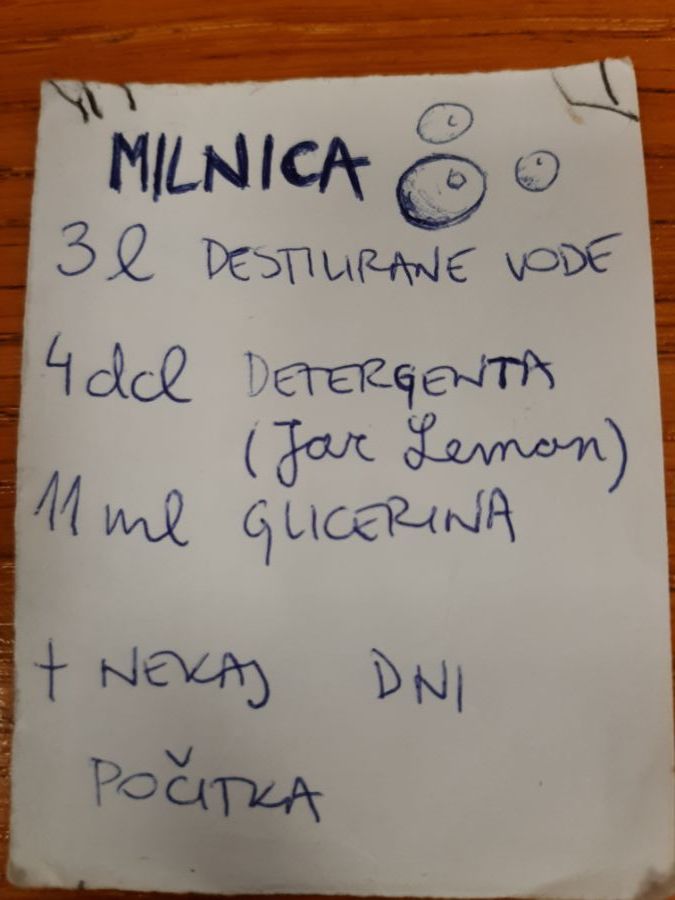 MILNICA
3l DESTILIRANE VODE
4dcl DETERGENTA
(Jar Lemon)
11 ml GLICERINA
+ NEKAJ DNI
POČITKA